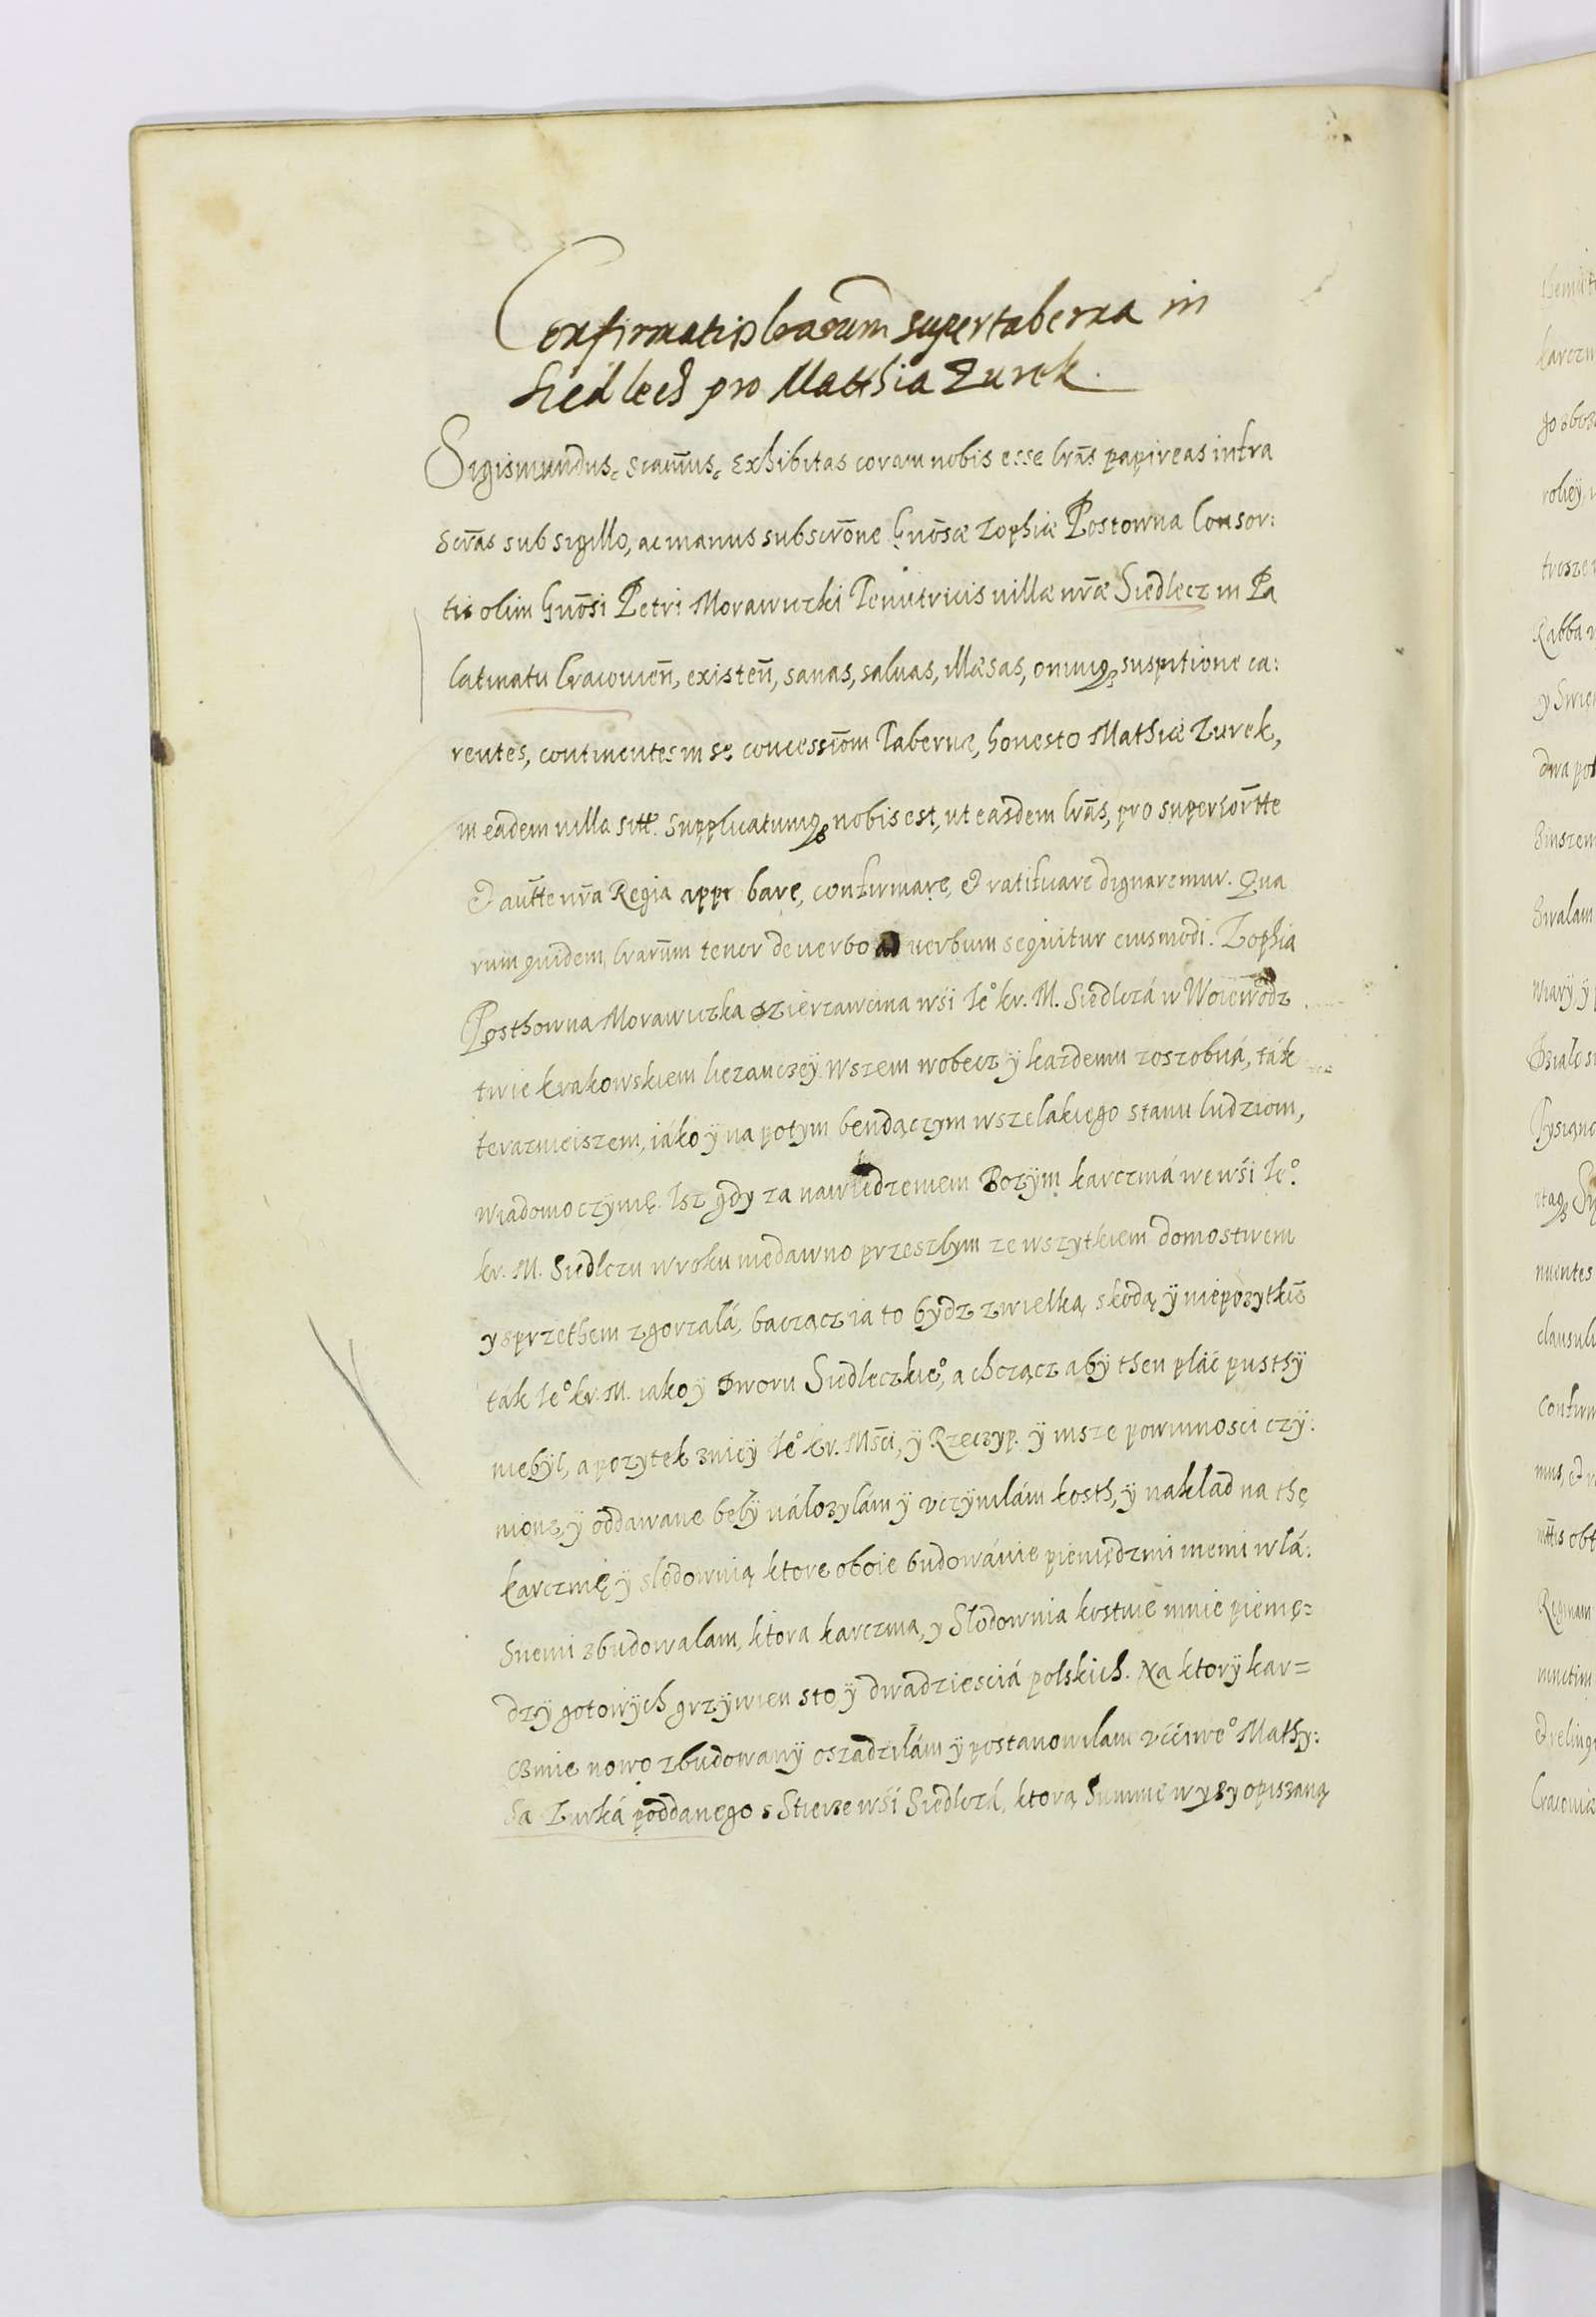 Confirmatio lrarum super taberna in
Siedlecz pro Matthia Zurek.
Sigismundus, Exhibitas coram nobis esse lrãs papireas infra
scrãs sub sigillo, ac manus subscrõne Gnõsæ Zophiæ Postowna Consor:
tis olim Gnõsi Petri Morawiczki Tenutricis villæ nrãe Siedlecz in Pa
latinatu Cracovien̄, existen̄, sanas, salvas, illæsas, omniq3 suspitione ca:
rentes, continentes in se concessiom̄ Tabernæ, honesto Mathiæ Zurek,
in eadem villa sitæ. Supplicatumq3 nobis est, ut easdem lrãs, pro superiorītte
& autt̄e nrã Regia appr bare, confirmare, & ratificare dignaremur. Qua
rum quidem lrarum̄ tenor de verbo ad verbum sequitur eiusmodi. Zophia
Posthowna Morawiczka dzierzawcina wsi Ie° kr. M. Siedlczá w Woiewodz
twie krakowskiem liezanczey wszem wobecz ÿ kazdemu zoszobná, ták
terazneiszem, iáko ÿ na potym bendączym wszelakiego stanu ludziom,
wiadomo czynię. Isz gdy za nawiedzeniem Bozÿm karczmá we wsi Ie°
kr. M. Siedlczu w roku niedawno przeszlym ze wszytkiem domostwem
y sprzethem zgorzalá, baczącz ia to bÿdz z wielką skodą ÿ niepozytkiē
tak Ie° kr. M. iako ÿ Dworu Siedleczkie°, a chcząćz abÿ then plác pusthÿ
niebÿl, a pozytek z nieÿ Ie° kr. Msc̄i, ÿ Rzeczyp. ÿ insze powinnosci czÿ:
nione, ÿ oddawane belÿ nálozylám ÿ vczÿnilám kosth, ÿ naklad na thę
karczmię ÿ slodownią ktore oboie budowánie pieniędzmi memi wlá:
snemi zbudowalam, ktora karczma, y Slodownia kostuie mnie pienię=
dzÿ gotowÿch grzÿwien sto ÿ dwadziesciá polskich. Na ktorÿ kar=
czmie nowo zbudowanÿ oszadzilám ÿ postanowilam vcciwe° Mathy:
sa Zurká poddanego s Steize wsi Siedlczá, ktorą Summę wyszy opiszaną